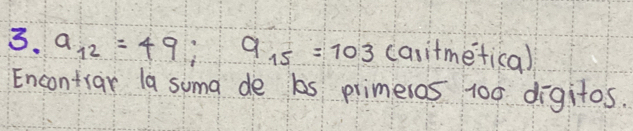 3. a₁₂ = 49; a₁₅ = 103 (aritmética)
Encontrar la suma de los primeros 100 dígitos.